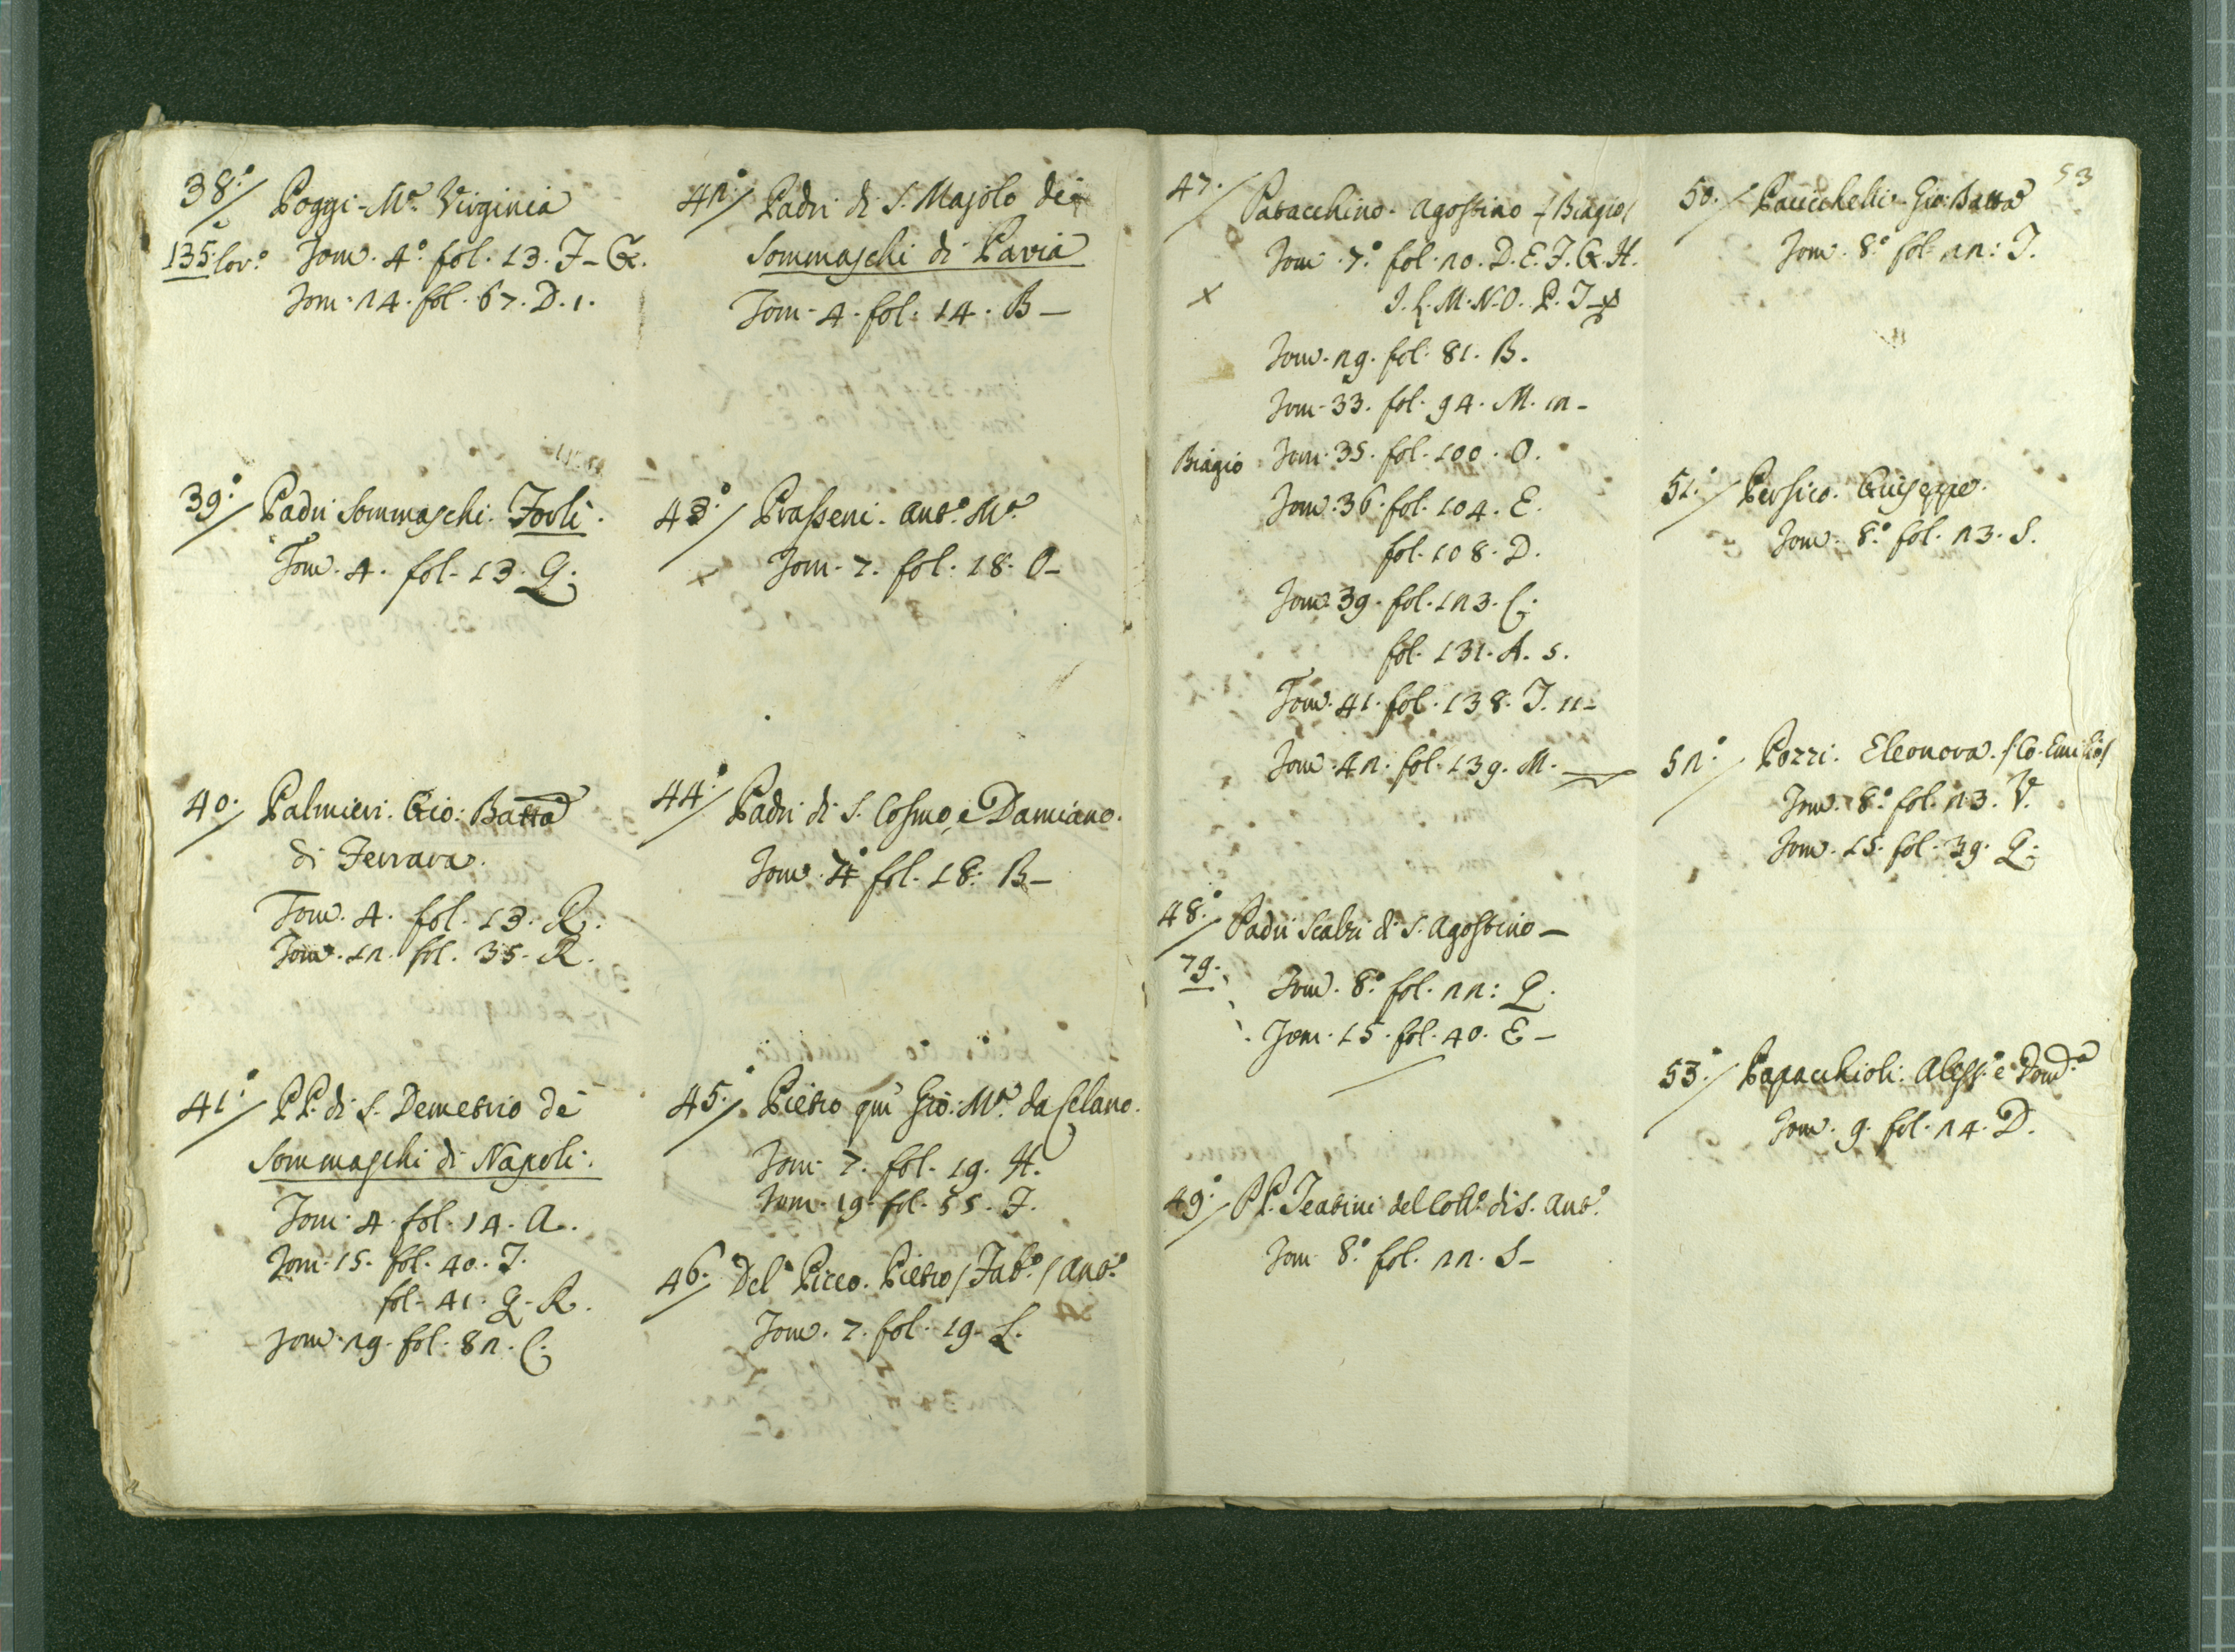 38°/ Poggi - Mª. Virginia
135. Cor.°
Tom. 4° fol. 13. F - G.
Tom. 24. fol. 67. D. 1.
39°/ Padri Sommaschi. Forlì.
Tom. 4. fol. 13. Q.
40./ Palmieri. Gio: Batta
di Ferrara.
Tom. 4. fol. 13. R.
Tom. 12. fol. 35. R.
41°/ PP. di S. Demetrio de
Sommaschi di Napoli.
Tom. 4. fol. 14. A.
Tom. 15. fol. 40. T.
fol. 41. Q. R.
Tom. 29. fol. 82. C.
42°/ Padri di S. Majolo de
Sommaschi di Pavia
Tom. 4. fol. 14. B -
43°/ Prasseni. Ant.° Mª.
x Tom. 7. fol. 18. O -
44°/ Padri di S. Cosmo, e Damiano.
Tom. 7° fol. 18. B -
45°/ Pietro qm̃ Gio: Mª. da Celano.
Tom. 7. fol. 19. H.
Tom. 19. fol. 55. F.
46°/ Del Picco. Pietro / Fab.° / Ant.°
Tom. 7. fol. 19. L.
53
47./ Patacchino. Agostino / Biagio /
Tom. 7° fol. 20. D. E. F. G. H.
x I. L. M. N. O. P. T
Tom. 29. fol. 81. B.
Tom. 33. fol. 94. M. 12 -
Biagio Tom. 35. fol. 100. O.
Tom. 36. fol. 104. E.
fol. 108. D.
Tom. 39. fol. 123. C.
fol. 131. A. 5.
Tom. 41. fol. 138. T. 11 -
Tom. 42. fol. 139. M.
48°/ Padri Scalzi di S. Agostino -
79.
Tom. 8° fol. 22: Q.
Tom. 15. fol. 40. E -
49°/ PP. Teatini del Coll.° di S. Ant.°
Tom. 8° fol. 22. S -
50./ Pacicchelli. Gio: Batta
Tom. 8° fol. 22: T.
51°/ Persico. Giuseppe.
Tom. 8° fol. 23. S.
52°/ Pozzi. Eleonora. / Co. Emilio /
Tom. 8° fol. 23. V.
Tom. 15. fol. 39. Q.
53°/ Papacchioli. Aless.° e Dom.°
Tom. 9. fol. 24. D.